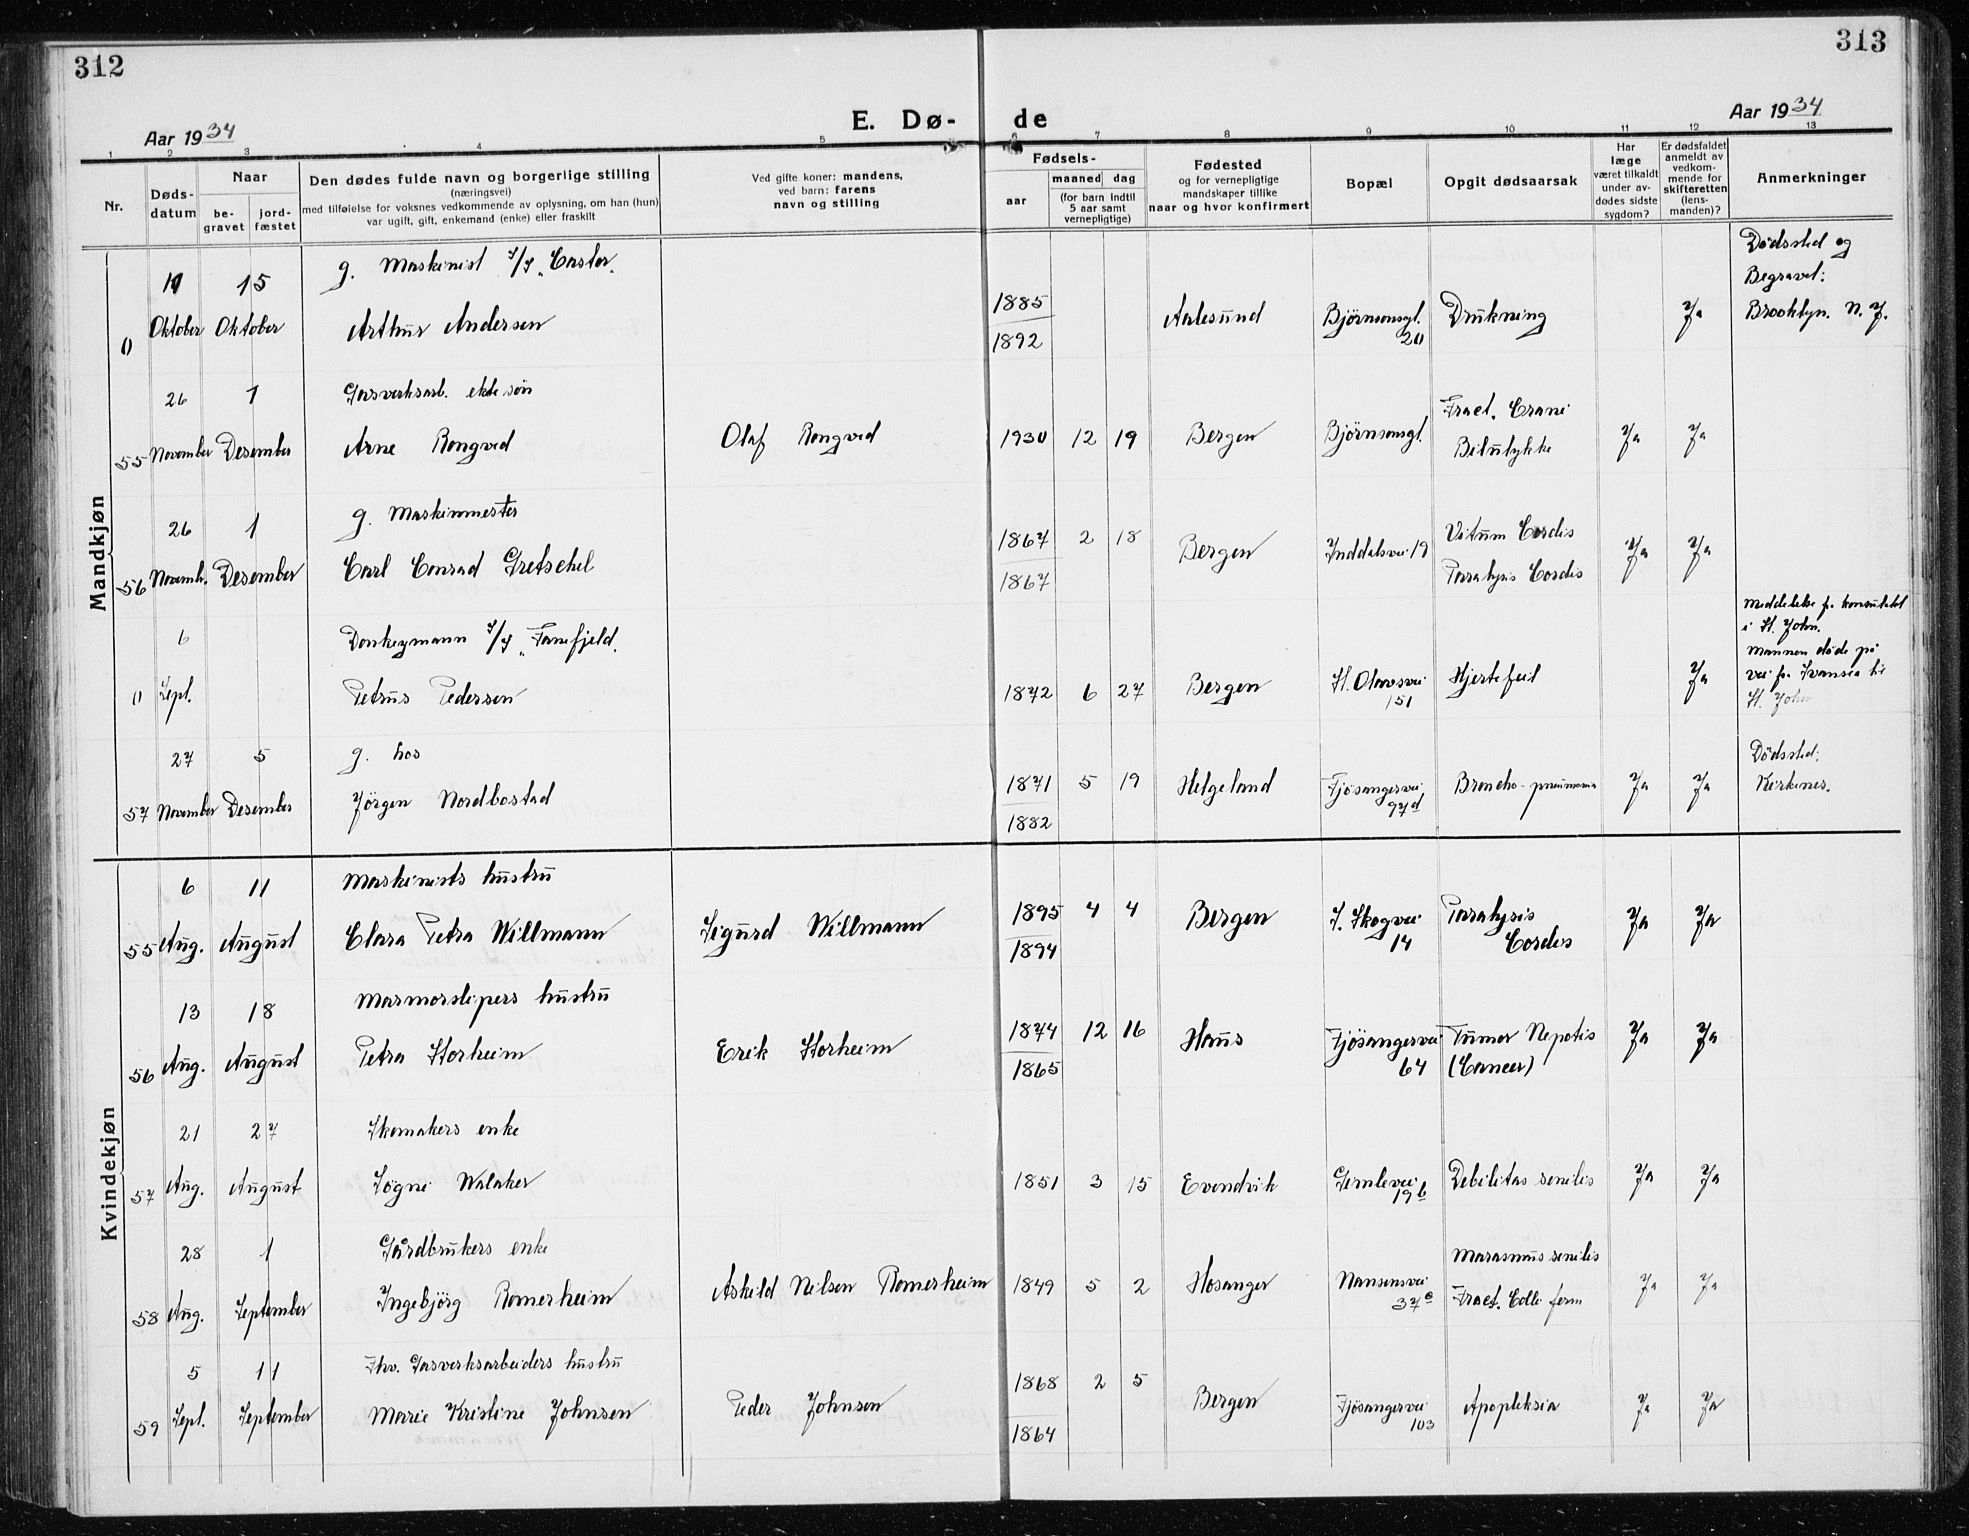 312
313
Aar 1934
E. Dø- de
Aar 1934
1 2 3 4 5 6 7 8 9 10 11 12 13
Nr.
Døds-
datum
Naar
be-
gravet
jord-
fæstet
Den dødes fulde navn og borgerlige stilling
(næringsvei)
med tilføielse for voksnes vedkommende av oplysning, om han (hun)
var ugift, gift, enkemand (enke) eller fraskilt
Ved gifte koner: mandens,
ved barn: farens
navn og stilling
Fødsels-
aar
maaned dag
(for barn indtil
5 aar samt
vernepligtige)
Fødested
og for vernepligtige
mandskaper tillike
naar og hvor konfirmert
Bopæl
Opgit dødsaarsak
Har
læge
været tilkaldt
under av-
dødes sidste
sygdom?
Er dødsfaldet
anmeldt av
vedkom-
mende for
skifteretten
(lens-
manden)?
Anmerkninger
Mandkjøn
11 15 g. Maskinist S/S „Castor.
0 Oktober Oktober Arthur Andersen 1885 Aalesund Bjørnsonsgt. Drukning Ja
1892 20
Dødssted og
Begravet:
Brooklyn. N. J.
26 1 Gasverksarb. ekte søn
Fract. Crani
55 November Desember Arne Rongved Olaf Rongved 1930 12 19 Bergen Bjørnsonsgt. Ja Ja
Bilulykke
26 1 g. Maskinmester
56 Novemb. Desember Carl Conrad Gretschel 1867 2 18 Bergen Inddalsvei 19 Vitium Cordis Ja Ja
1867 Paralysis Cordis
6 Donkeymann S/S „Fanefjeld.
0 Sept. Petrus Pedersen 1872 6 27 Bergen St. Olavsvei Hjertefeil Ja
151
Meddelelse fr. konsulatet
i St. John.
Mannen døde på
vei fr. Ivansea til
St. John
27 5 g. hos
57 November Desember Jørgen Nordbostad 1871 5 19 Helgeland Fjøsangervei Broncho-pneumonia Ja Ja
1882 97d
Dødssted:
Kirkenes.
Kvindekjøn
6 11 Maskinists hustru
55 Aug. August Clara Petra Willmann Sigurd Willmann 1895 4 4 Bergen S. Skogvei Paralysis Ja Ja
1894 14 Cordis
13 18 Marmorslipers hustru
56 Aug. August Petra Storheim Erik Storheim 1874 12 16 Haus Fjøsangervei Tumor Nepotis Ja Ja
1865 64 (Cancer)
21 27 Skomakers enke
57 Aug. August Søgni Walaker 1851 3 15 Evendvik Gamlevei Debilitas senilis Ja Ja
19b
28 1 Gårdbrukers enke
Marasmus senilis
58 Aug. September Ingebjørg Romerheim Askild Nilsen Romerheim 1849 5 2 Hosanger Nansensvei Ja Ja
37c Fract. Colli fem
5 11 Fhv. Gasverksarbeiders hustru
59 Sept. September Marie Kristine Johnsen Peder Johnsen 1868 2 5 Bergen Fjøsangervei Apopleksia Ja Ja
1864 103